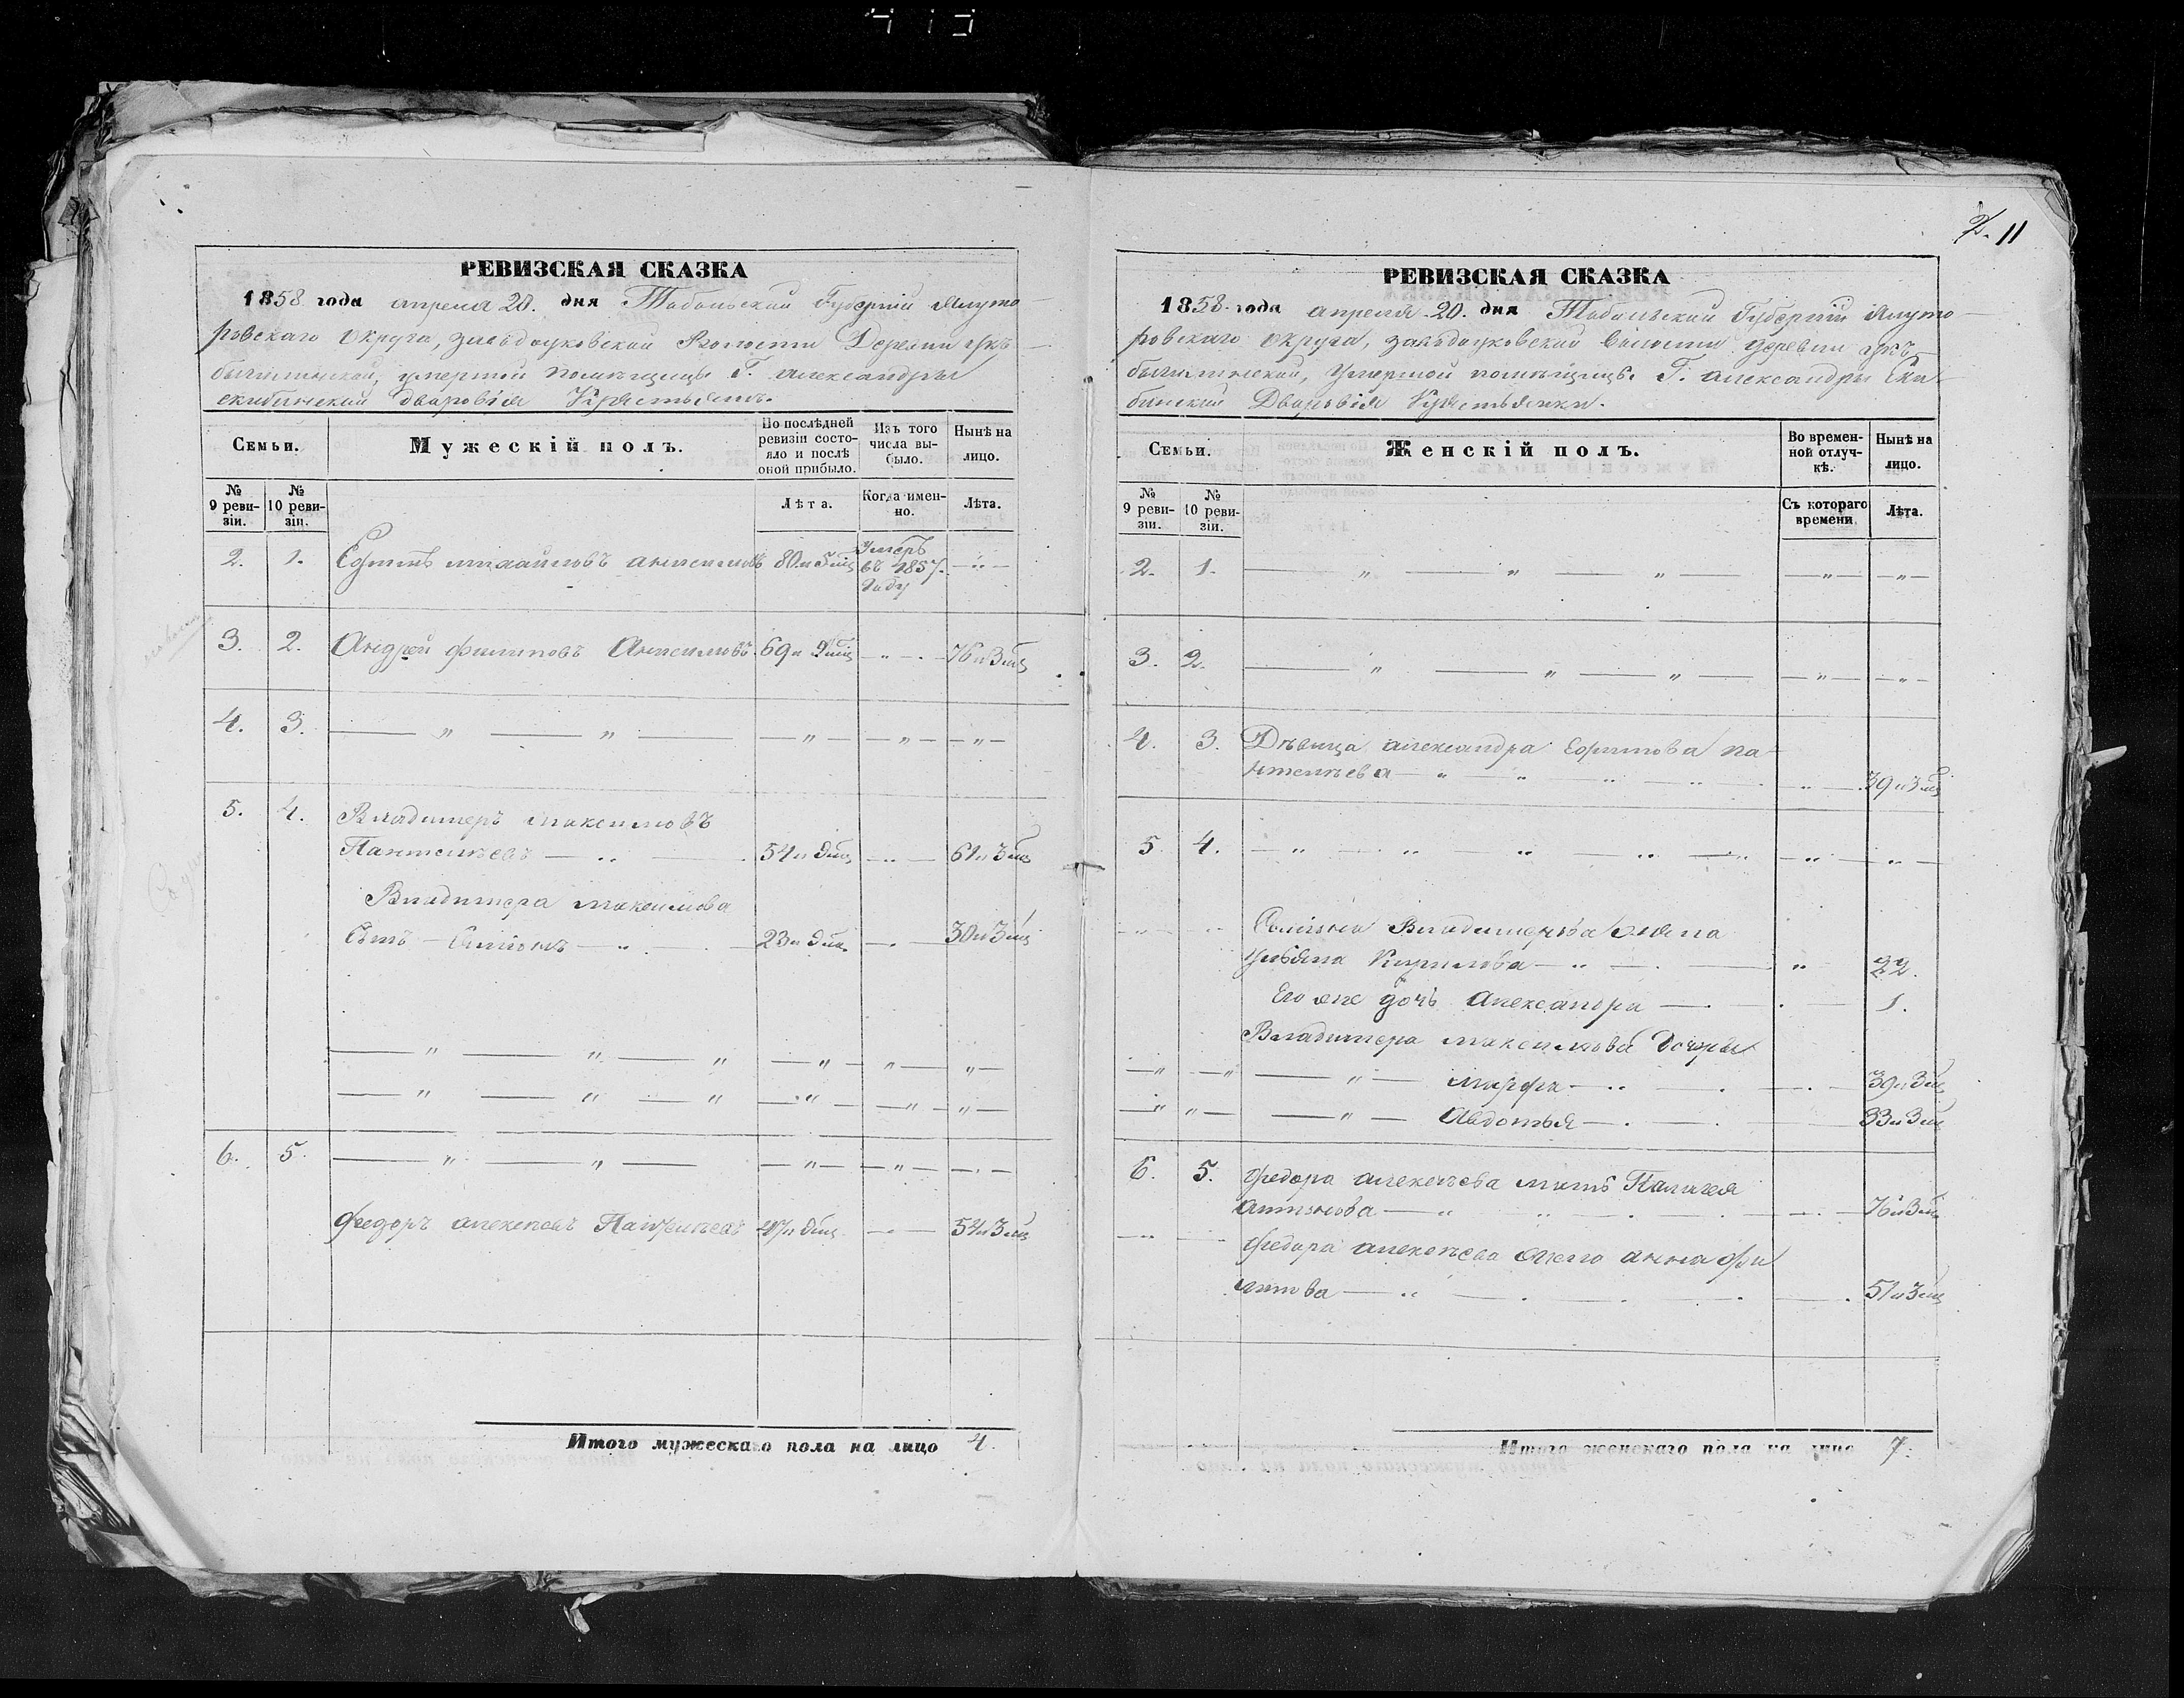 РЕВИЗСКАЯ СКАЗКА
1858 года апреля 20. дня Тобольской Губерніи Ялуто-
ровскаго Округа, заводоуковской Волости Деревни
умершой помѣщицы Г. александры
скибинской дваровія Крестьянъ.
Семьи.
Мужескій полъ.
По послѣдней ревизіи состояло и послѣ оной прибыло.
Изъ того числа выбыло.
Нынѣ на лицо.
№ 9 ревизіи.
№ 10 ревизіи.
Лѣта.
Когда именно.
Лѣта.
2. 1. михайловъ 80 и 5 мѣц Умеръ въ 1857. Году
3. 2. Андрей филиповъ 69 и 9 мѣц 76 и 3 мѣц
4. 3. — " — " — — " — — " — — " —
5. 4. Владимеръ максимовъ
Пантелѣевъ 54 и 9 мѣц 61 и 3 мѣц
Владимера максимова
Сынъ 23 и 9 мѣц 30 и 3 мѣц
— " — " — " — " — " — " —
— " — " — " — " — " — " —
6. 5. — " — " — — " — — " — — . —
федоръ алексѣевъ 47 и 9 мѣц 54 и 3 мѣц
Итого мужескаго пола на лицо 4.
2. 11
РЕВИЗСКАЯ СКАЗКА
1858 года апреля 20. дня Тобольской Губерніи Ялуто-
ровскаго округа, заводоуковской волости деревни
умершой помѣщицы Г. александры Ски-
бинской Дваровія Крестьянки.
Семьи.
Женскій полъ.
Во временной отлучкѣ.
Нынѣ на лицо.
№ 9 ревизіи.
№ 10 ревизіи.
Съ котораго времени
Лѣта.
2. 1. — " — " — " — — " — — " —
3. 2. — " — " — " — — " — — " —
4. 3. Дѣвица александра па-
нтелѣева 39 и 3 мѣц
5 4. — " — " — " — " — " — " —
Владимерова жена
Ульяна Кирилова 22.
Его же дочь Александра 1.
Владимера максимова дочери
марфа 39 и 3 мѣц
Авдотья 33 и 3 мѣц
6. 5. федора алексѣева мать Палагея
76 и 3 мѣц
федора алексѣева жена анна фи
липова 51 и 3 мѣц
Итого женскаго пола на лицо 7.